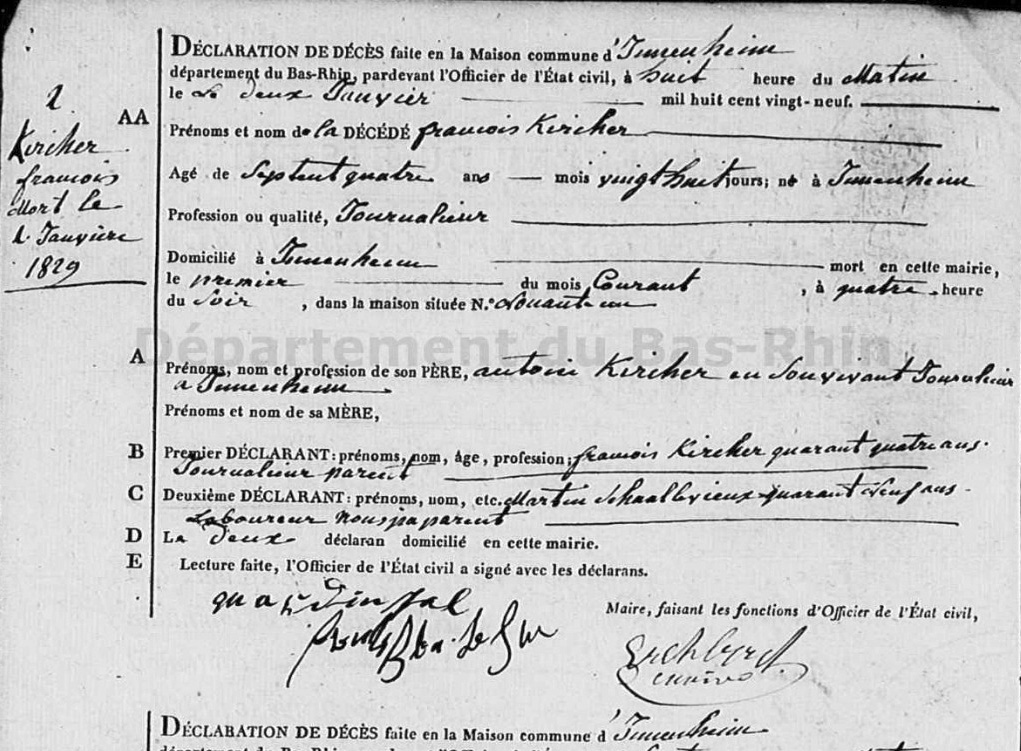 DÉCLARATION DE DÉCÈS faite en la Maison commune d'Jmenheim
département du Bas-Rhin, pardevant l'Officier de l'État civil, à huit heure du Matin
le Le deux Janvier mil huit cent vingt-neuf.
AA
Kircher
francois
Mort le
1. Janvier
1829
Prénoms et nom de la DÉCÉDÉ francois Kircher
Agé de Septent quatre ans mois vingt huit jours; né à Jmenheim
Profession ou qualité, Journalieur
Domicilié à Jmenheim mort en cette mairie,
le premier du mois Courant, à quatre heure
du Soir, dans la maison située N.º
Département du Bas-Rhin
A
Prénoms, nom et profession de son PÈRE, antoni Kircher en Sonvivant Journalieur
a Jmenheim
Prénoms et nom de sa MÈRE,
B
Premier DÉCLARANT: prénoms, nom, âge, profession; francois Kircher quarant quatre ans.
Journalieur parent
C
Deuxième DÉCLARANT: prénoms, nom, etc. Martin quarant neuf ans.
Laboureur parent
D
La deux déclaran domicilié en cette mairie.
E
Lecture faite, l'Officier de l'État civil a signé avec les déclarans.
Maire, faisant les fonctions d'Officier de l'État civil,
DÉCLARATION DE DÉCÈS faite en la Maison commune d'Jmenheim